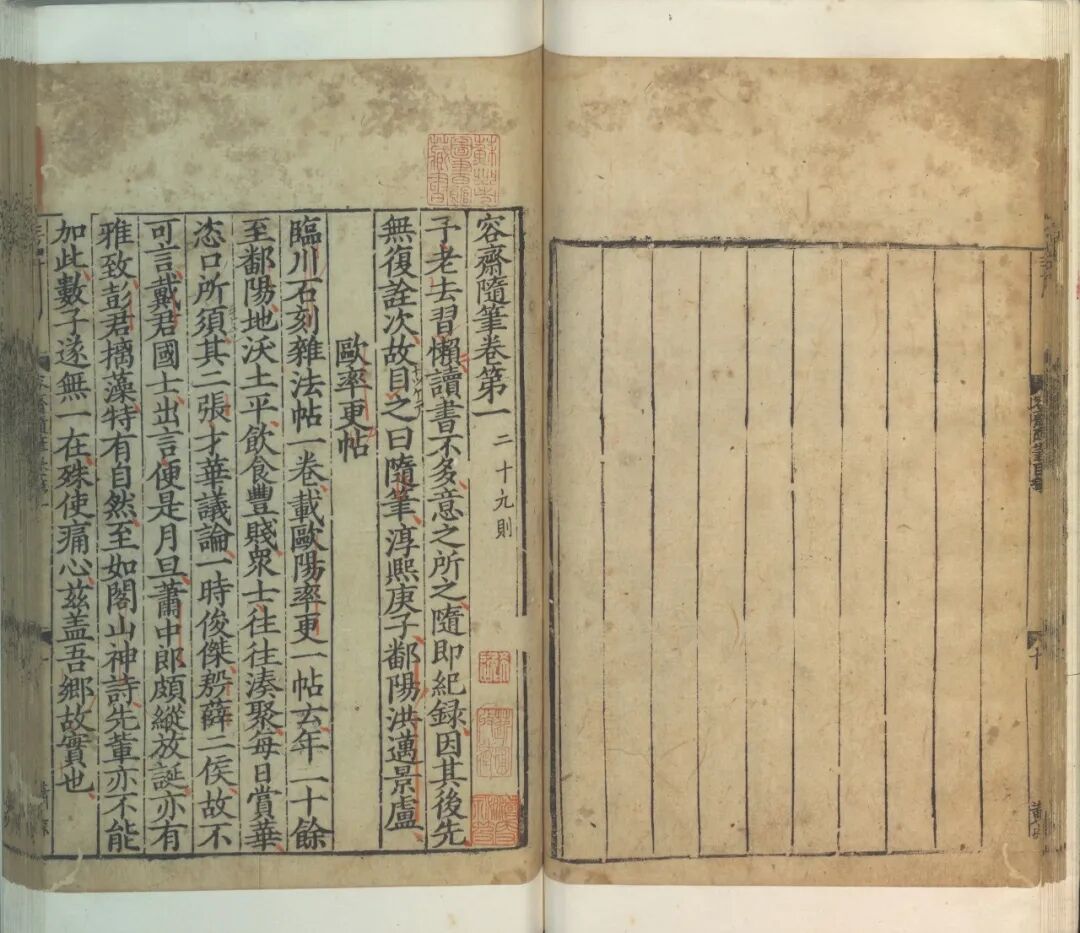 容齋隨筆卷第一 二十九則
予老去習懶讀書不多意之所之隨即紀録因其後先
無復詮次故目之曰隨筆淳熙庚子鄱陽洪邁景盧
歐率更帖
臨川石刻雜法帖一卷載歐陽率更一帖云年二十餘
至鄱陽地沃土平飲食豐賤衆士往往湊聚每日賞華
恣口所須其二張才華議論一時俊傑殷薛二侯故不
可言戴君國士出言便是月旦蕭中郎頗縱放誕亦有
雅致彭君摛藻特有自然至如閣山神詩先輩亦不能
加此數子遂無一在殊使痛心茲盖吾鄉故實也
蘇州圖書館藏書